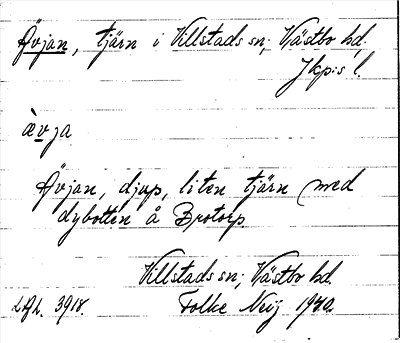 Ävjan, tjärn i Villstads sn; Västbo hd.
Jkp:s l.
àvja
Ävjan, djup, liten tjärn med
dybotten å Brotorp.
Villstads sn; Västbo hd.
3918. Folke 1940.